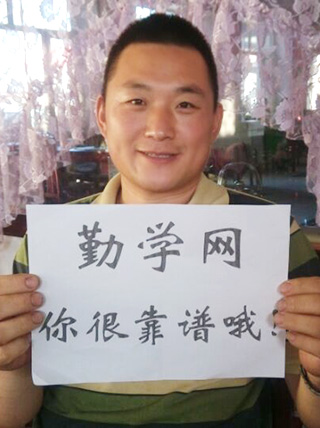 勤学网
你很靠谱哦!